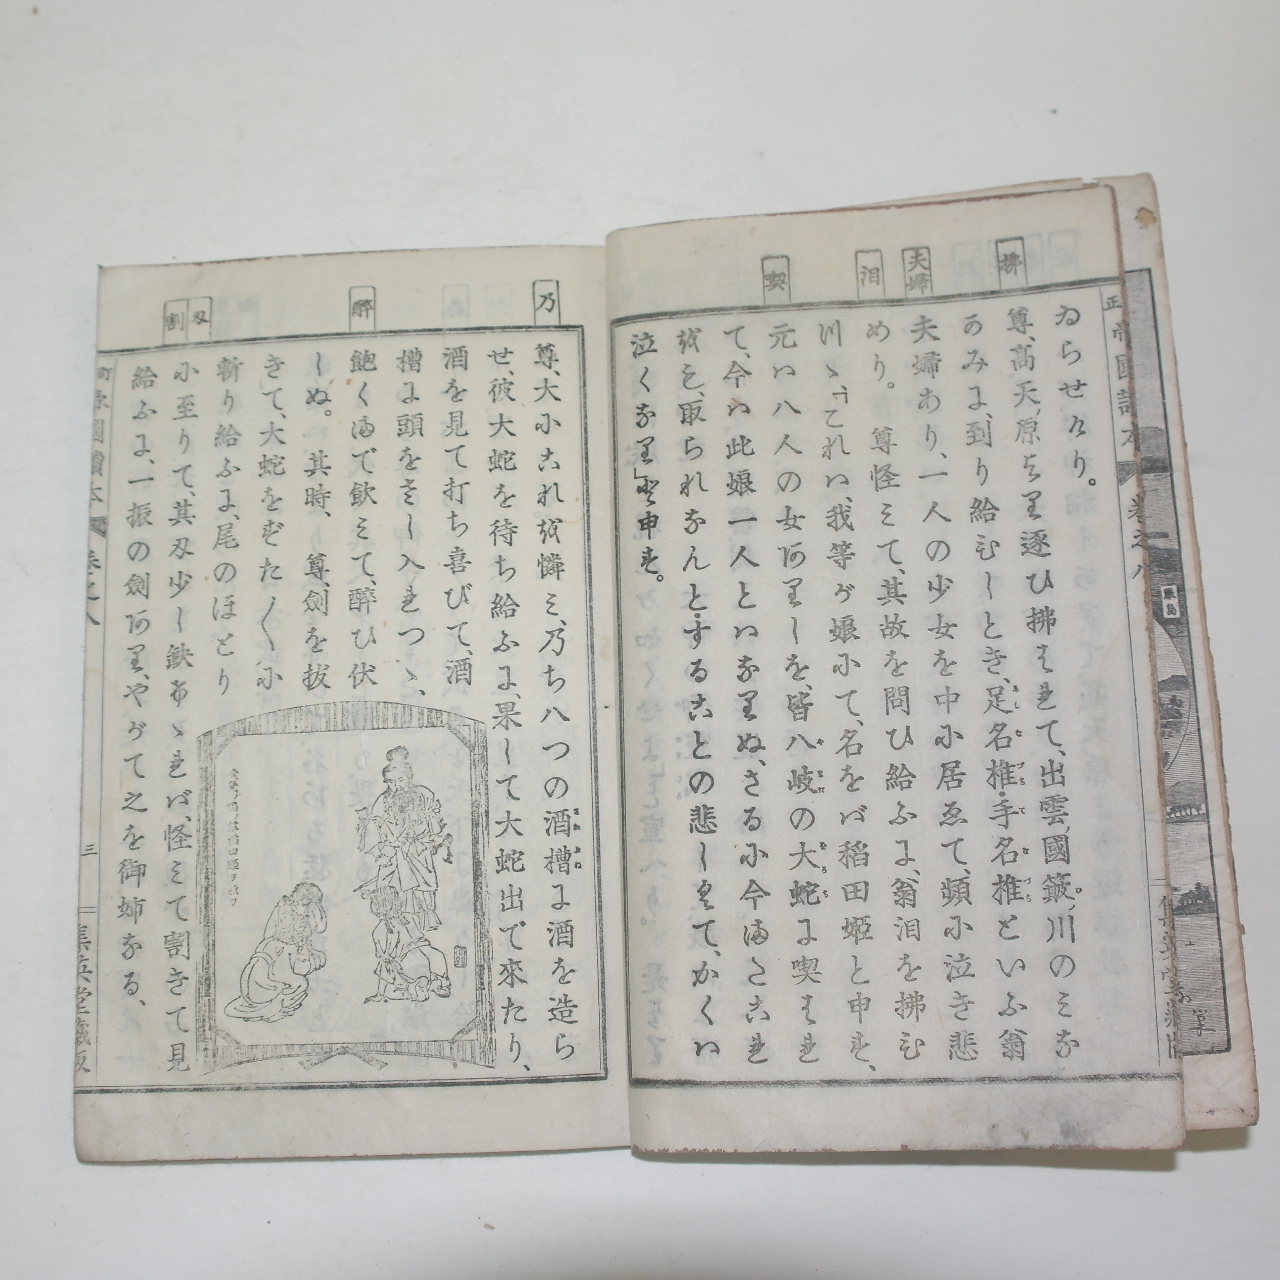 拂
夫婦
泪
喫
ゐらせけり。
尊、高天ノ原より逐ひ拂はれて、出雲ノ國簸ノ川のみな
のみに、到り給ひしとき、足名椎・手名椎といふ翁
夫婦あり、一人の少女を中に居ゑて、頻に泣き悲
めり。尊怪みて、其故を問ひ給ふに、翁泪を拂ひ
つゝ、「これハ、我等が娘にて、名をバ稻田姫と申す、
元ハ八人の女ありしを、皆八岐の大蛇に喫はれ
て、今ハ此娘一人とハなりぬ、さるに今またこれ
をも、取られなんとすることの悲しくて、かくハ
泣くなり」と申す。
乃
醉
刄
割
尊、大にこれを憐み、乃ち八つの酒槽に酒を造ら
せ、彼大蛇を待ち給ふに、果して大蛇出で來たり、
酒を見て打ち喜びて、酒
槽に頭をさし入れつゝ、
飽くまで飲みて、醉ひ伏
しぬ。其時、尊、劍を拔
きて、大蛇をずた〱に
斬り給ふに、尾のほとり
に至りて、其刄少し缺けゝれバ、怪みて割きて見
給ふに、一振の劍あり、やがて之を御姉なる、
正 帝國讀本 卷之八
帝國讀本 卷之八 三 集英堂藏版
嚴島